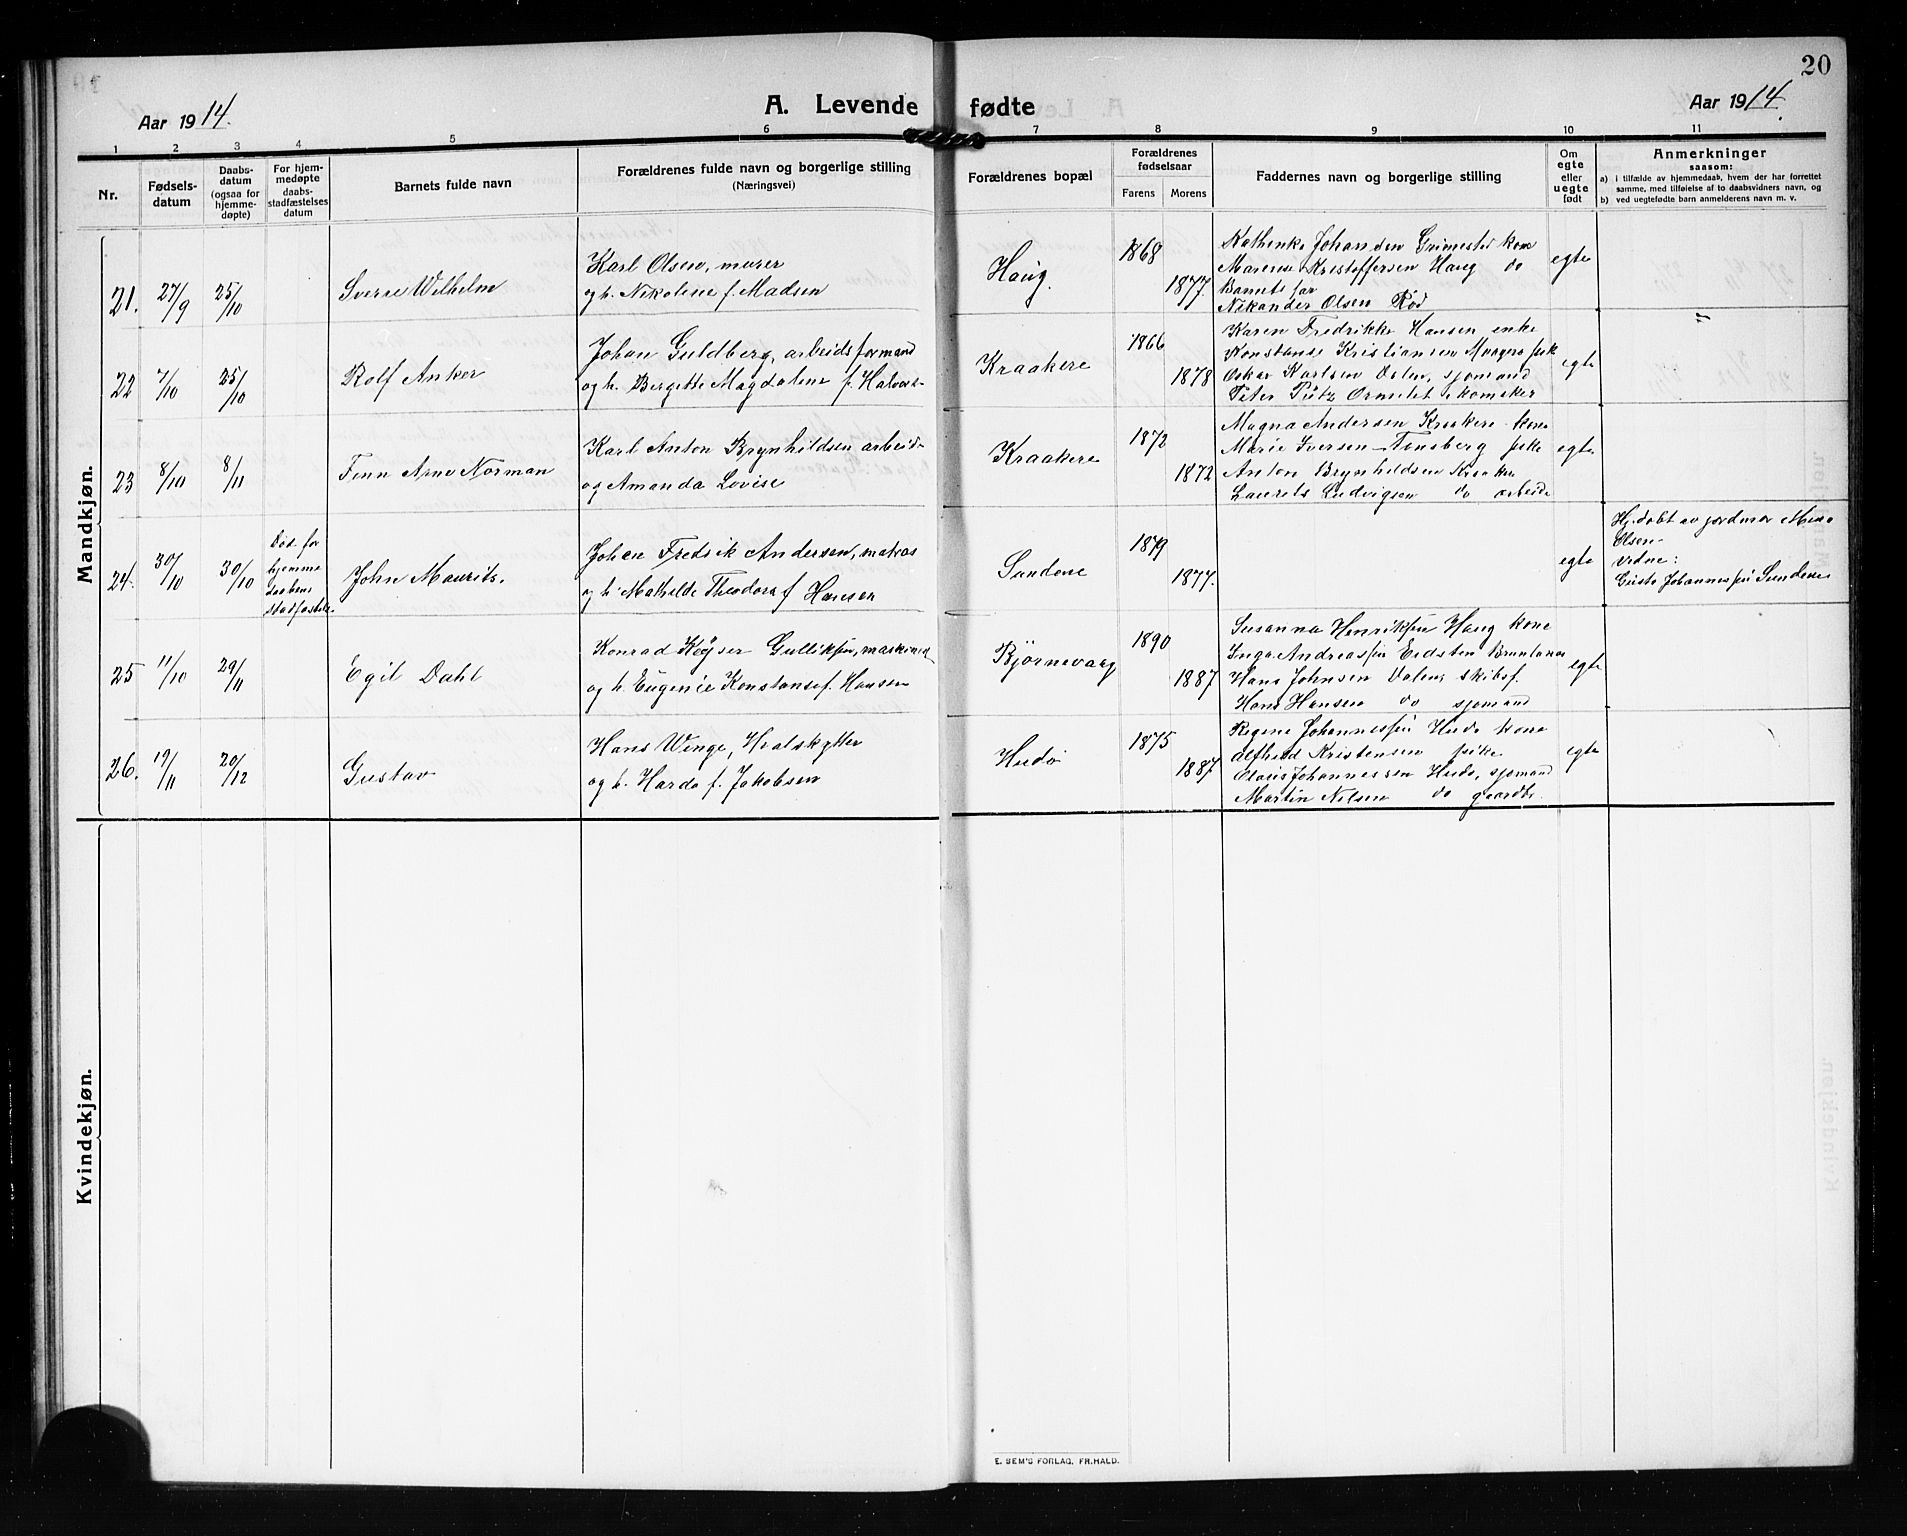 20
Aar 1914.
A. Levende fødte
Aar 1914.
1 2 3 4 5 6 7 8 9 10 11
Nr.
Fødsels-
datum
Daabs-
datum
(ogsaa for
hjemme-
døpte)
For hjem-
medøpte
daabs-
stadfæstelses
datum
Barnets fulde navn
Forældrenes fulde navn og borgerlige stilling
(Næringsvei)
Forældrenes bopæl
Forældrenes
fødselsaar
Farens Morens
Faddernes navn og borgerlige stilling
Om
egte
eller
uegte
født
Anmerkninger
saasom:
a) i tilfælde av hjemmedaab, hvem der har forrettet
samme, med tilføielse af to daabsvidners navn, og
b) ved uegtefødte barn anmelderens navn m. v.
Mandkjøn.
21. 27/9 25/10
Sverre Wilhelm
Karl Olsen, murer
og h. Nikoline f. Madsen
Haug.
1868
1877.
Kathenka Johansen Grimestad kone
Marense Kristoffersen Haug do
Barnets far
Nikander Olsen Rød
egte
22 7/10 25/10
Rolf Anker
Johan Guldberg, arbeidsformand
og h. Bergitte Magdalene f. Halvors-
Kraakere
1866
1878
Karen Fredrikke Hansen enke
Konstanse Kristiansen
Oskar Karlsen sjømand
Peter
egte
"
23 8/10 8/11
Finn Arne Norman
Karl Anton Brynhildsen arbeid-
og Amanda Lovise
Kraakere
1872
1872
Magna Andersen Kraakere kone
Marie Iversen Tønsberg pike
Anton Brynhildsen Kraaker
Laurits Ludvigsen do arbeide
egte
24. 30/10 30/10
Død før
hjemme
daabens
stadfæstelse
John Maurits.
Johan Fredrik Andersen, matros
og h. Mathilde Theodora f Hansen
Sundene
1879
1877.
egte
Hj.døbt av jordmor
Olsen-
vidne:
Johannessen Sundene
25 11/10 29/11
Egil Dahl
Konrad Keyser Gulliksen, maskinist
og h. Eugenie Konstanse f. Hansen
Bjørnevaag
1890
1887
Susanna Henriksen Haug kone
Inga Andreassen Eidsten Brunlanes
Hans Johnsen skibsf.
Hans Hansen do sjømand
egte
26. 19/11 20/12
Gustav
Hans Winge, Hvalskytter
og h. Harda f. Jakobsen
Hudø
1875
1887.
Regine Johannessen Hudø kone
Alfhild Kristensen pike
Olaus Johannessen Hudø, sjømand
Martin Nilsen do gaardbr.
egte
Kvindekjøn.
E. SEM'S FORLAG, FR.HALD.